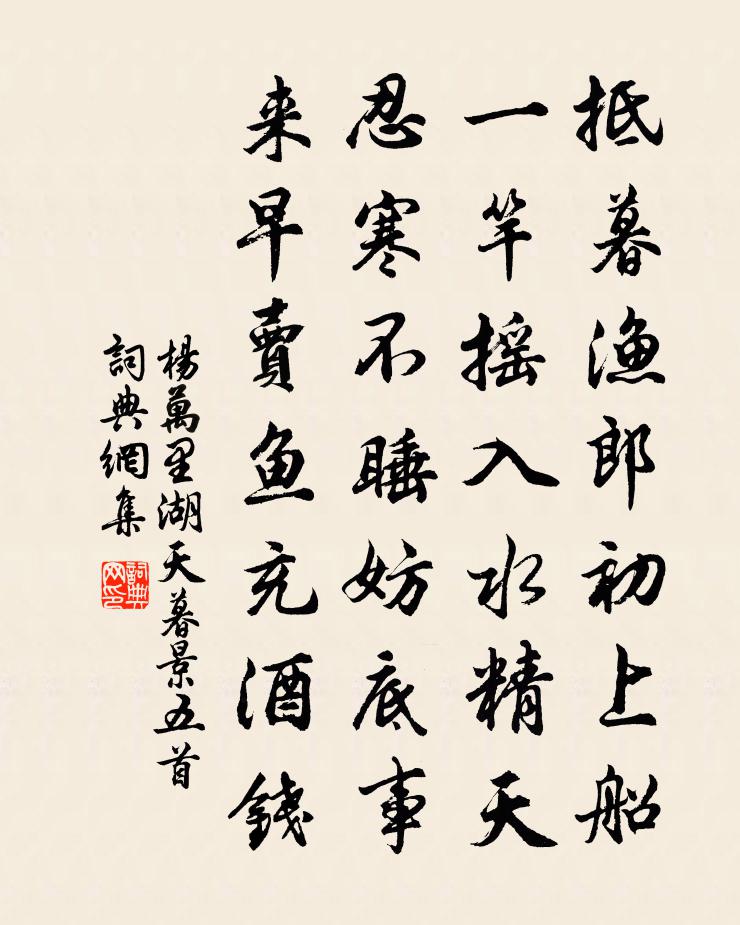 抵暮漁郎初上船
一竿摇入水精天
忍寒不睡妨底事
来早賣鱼充酒錢
楊萬里湖天暮景五首
詞典網集
詞典网印